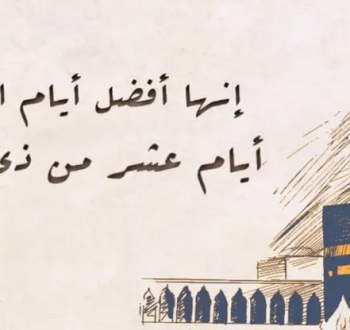 إنها أفضل أيام
أيام عشر من